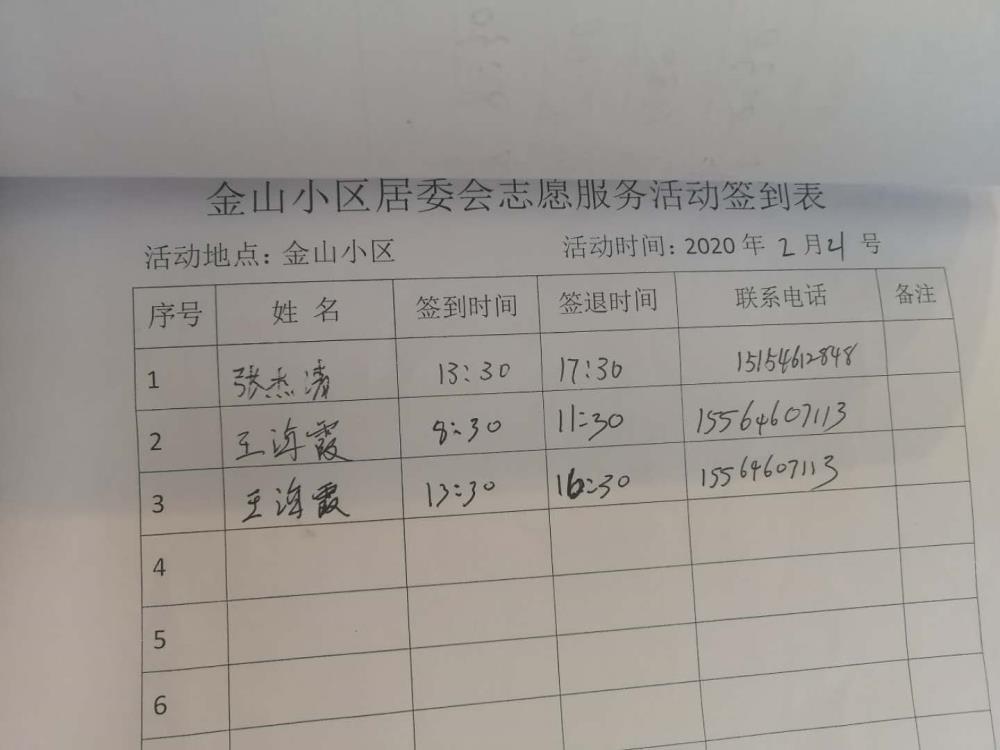 金山小区居委会志愿服务活动签到表
活动地点: 金山小区 活动时间: 2020 年 2 月 4 号
序号 姓 名 签到时间 签退时间 联系电话 备注
1 张杰清 13:30 17:30 15154612848
2 王海霞 8:30 11:30 15564607113
3 王海霞 13:30 16:30 15564607113
4
5
6